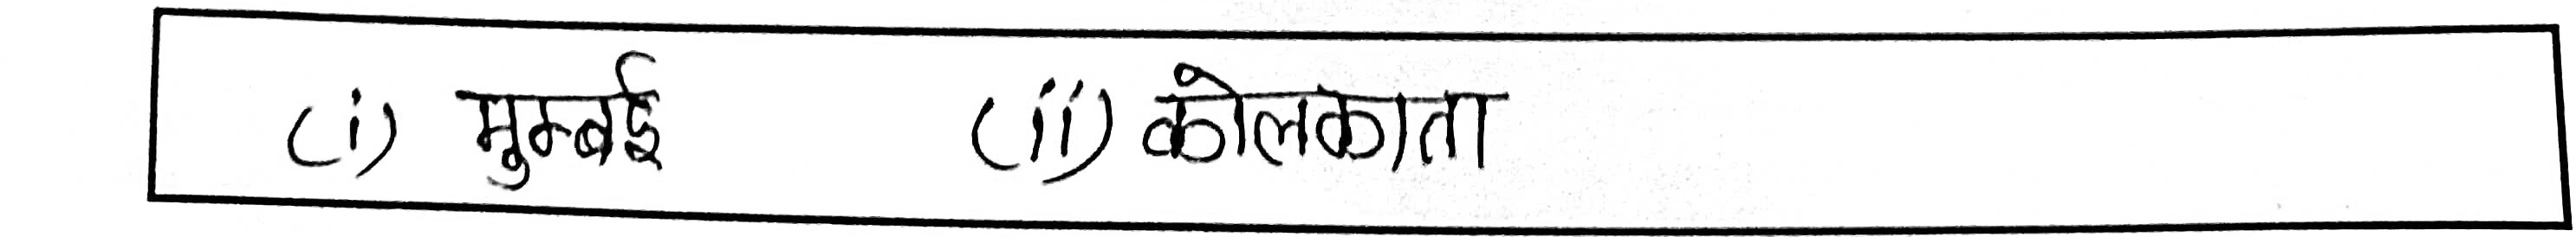 (i) मुम्बई (ii) कोलकाता